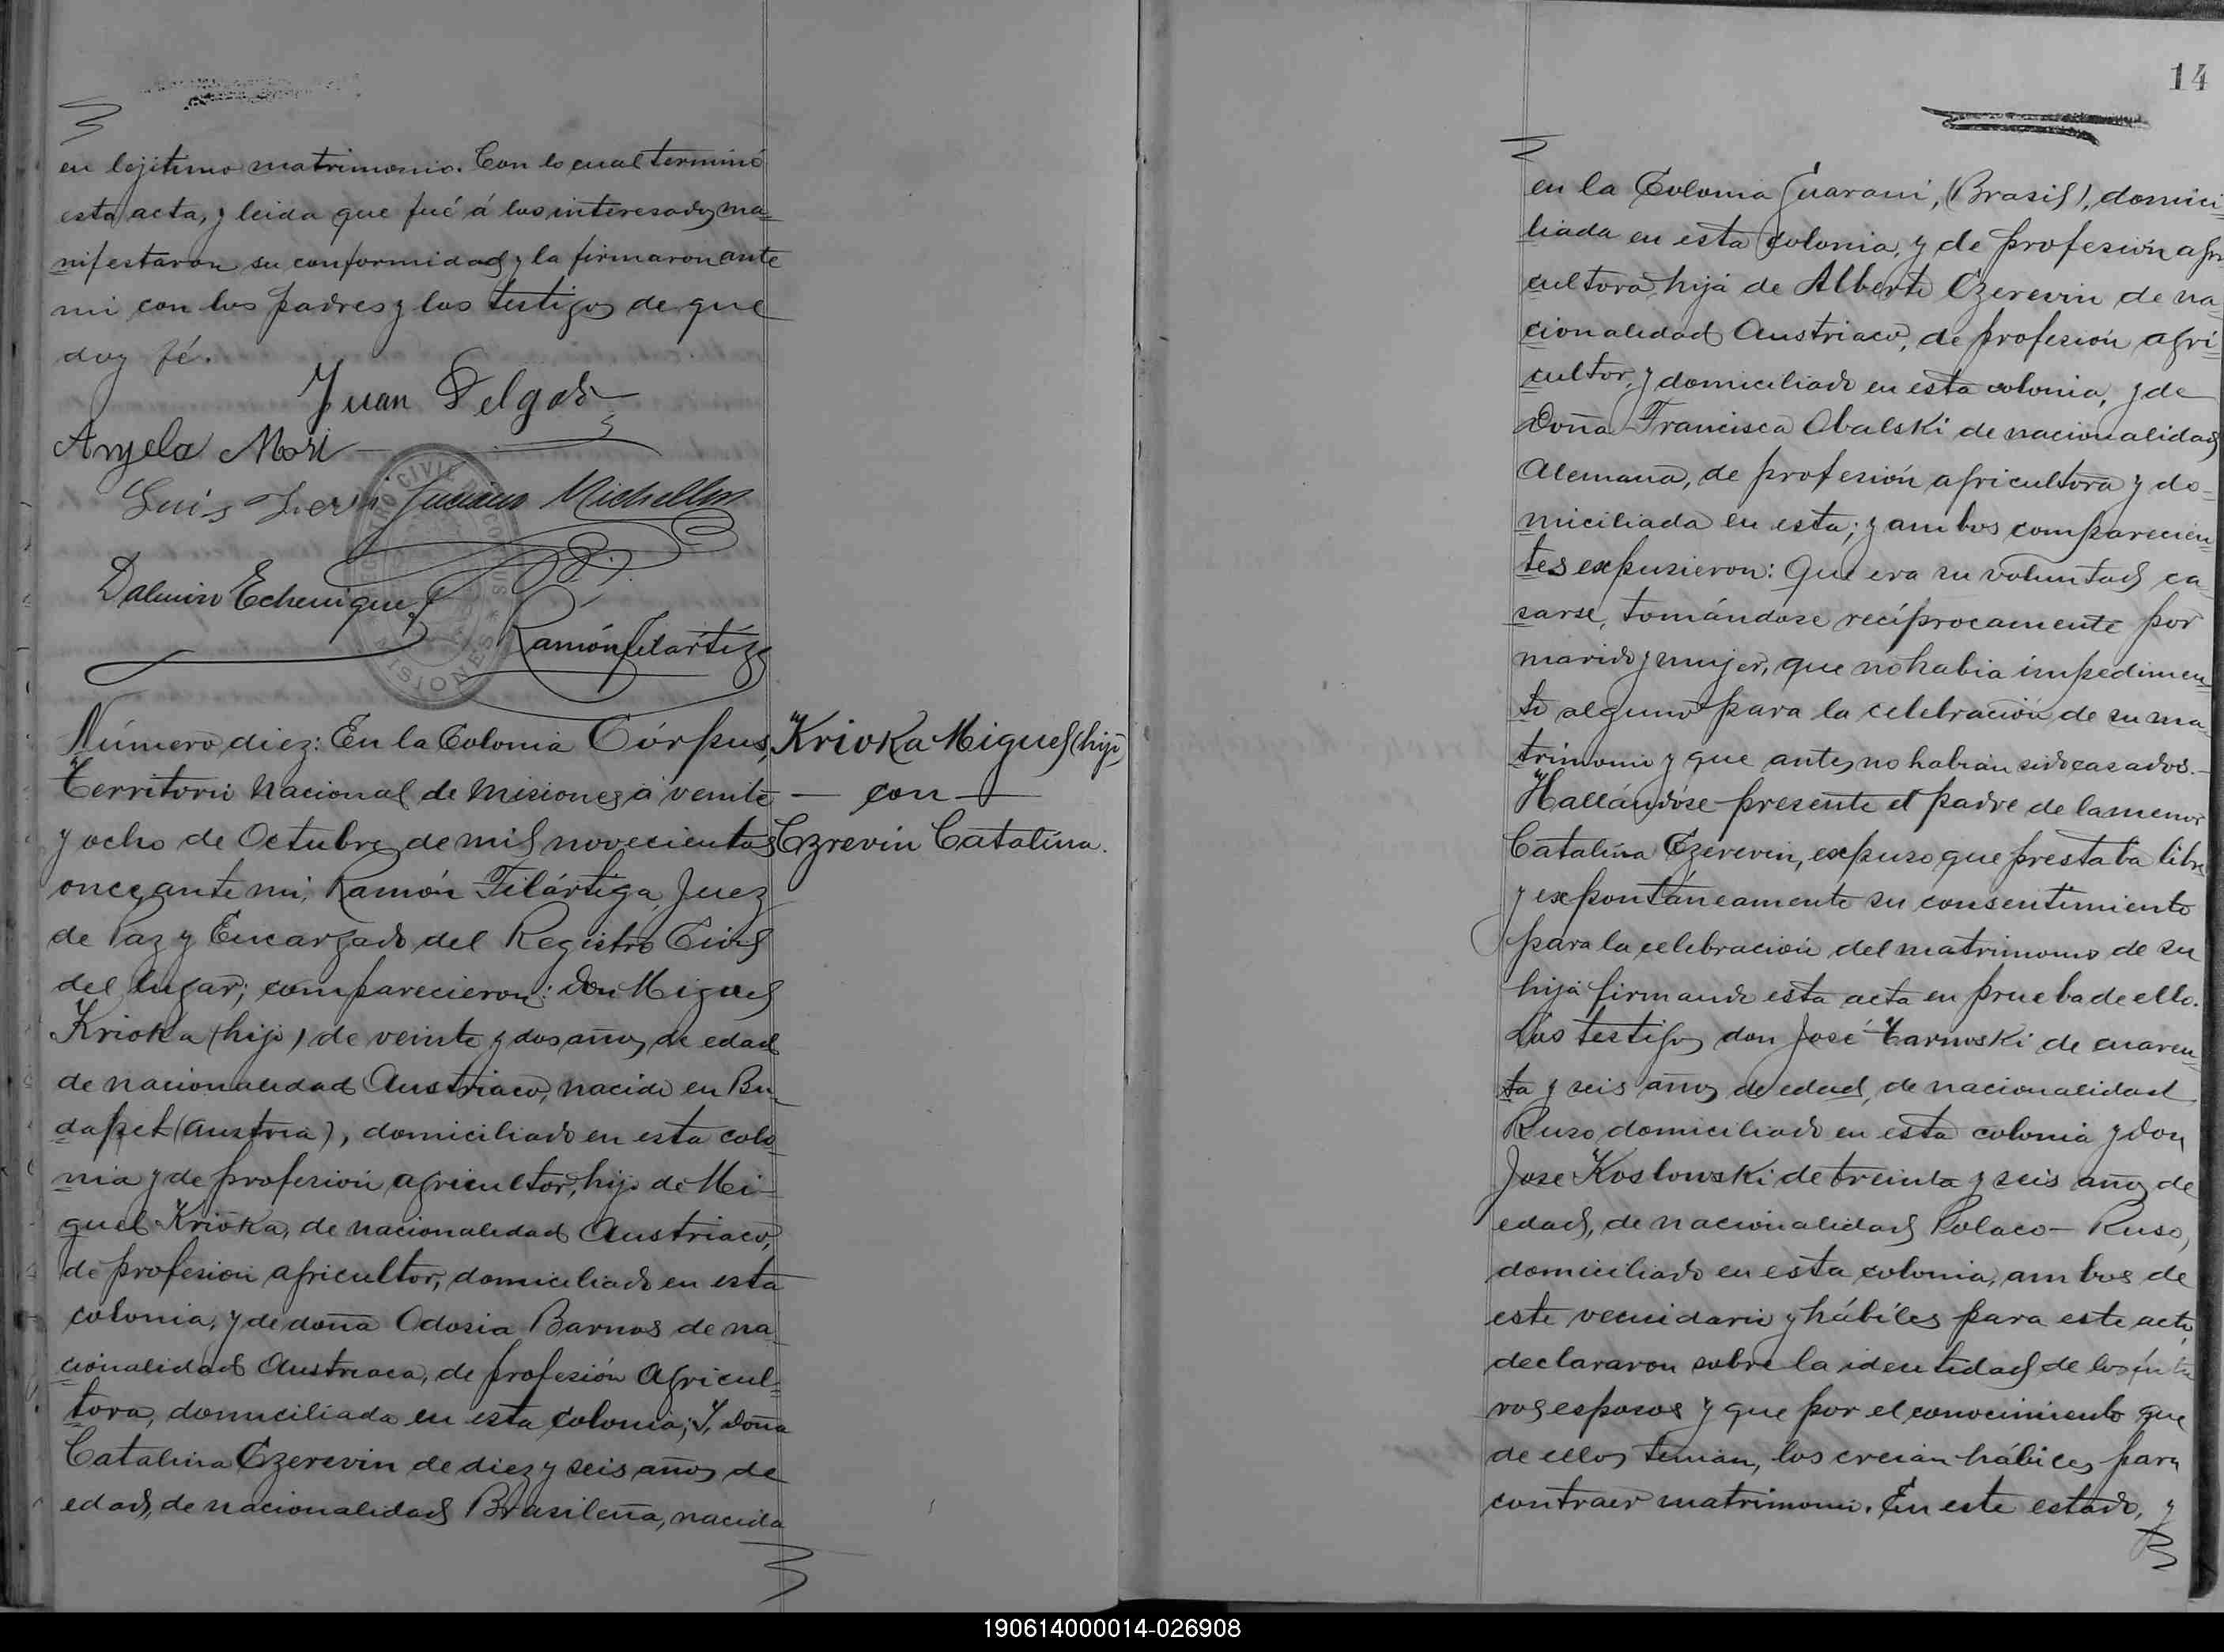 en lejítimo matrimonio. Con lo cual terminó
esta acta, y leida que fué á los interesados ma=
nifestaron su conformidad y la firmaron ante
mi con los padres y los testigos de que
doy fé.
Juan Delgado
Angela Mori
Luis
Luciano
Dalmiro Echenique
Ramón Filártiga
REGISTRO CIVIL
CORPUS
MISIONES
Número diez: En la Colonia Córpus,
Territorio Nacional de Misiones á veinte
y ocho de Octubre de mil novecientos
once, ante mi, Ramón Filártiga, Juez
de Paz y Encargado del Registro Civil
del lugar; comparecieron: Don Miguel
Krioka (hijo) de veinte y dos años de edad
de nacionalidad Austriaco, nacido en Bu=
dapet (Austria), domiciliado en esta colo=
nia y de profesión agricultor, hijo de Mi=
guel Krioka, de nacionalidad Austriaco,
de profesión agricultor, domiciliado en esta
colonia, y de doña Odosia Barnas de na=
cionalidad Austriaca, de profesión Agricul=
tora, domiciliada en esta colonia; Y, Doña
Catalina Czerevin de diez y seis años de
edad, de nacionalidad Brasileña, nacida
Krioka Miguel (hijo)
— con —
Czrevin Catalina.
14
en la Colonia Guarani, (Brasil), domici=
liada en esta colonia, y de profesión agri=
cultora, hija de Alberto Czerevin de na=
cionalidad Austriaco, de profesión agri=
cultor, y domiciliado en esta colonia, y de
Doña Francisca Obalski de nacionalidad
Alemana, de profesión agricultora y do=
miciliada en esta; y ambos comparecien=
tes expusieron: Que era su voluntad ca=
sarse, tomándose recíprocamente por
marido y mujer, que no habia impedimen=
to alguno para la celebración de su ma=
trimonio y que antes no habian sido casados.—
Hallándose presente el padre de la menor
Catalina Czerevin, expuso que prestaba libre
y expontáneamente su consentimiento
para la celebración del matrimonio de su
hija firmando esta acta en prueba de ello.
Los testigos don José Tarnoski de cuaren=
ta y seis años de edad, de nacionalidad
Ruso domiciliado en esta colonia y don
Jose Koslowski de treinta y seis años de
edad, de nacionalidad Polaco-Ruso,
domiciliado en esta colonia, ambos de
este vecindario y hábiles para este acto,
declararon sobre la identidad de los futu
ros esposos y que por el conocimiento que
de ellos tenian, los creian hábiles para
contraer matrimonio. En este estado, y
190614000014-026908